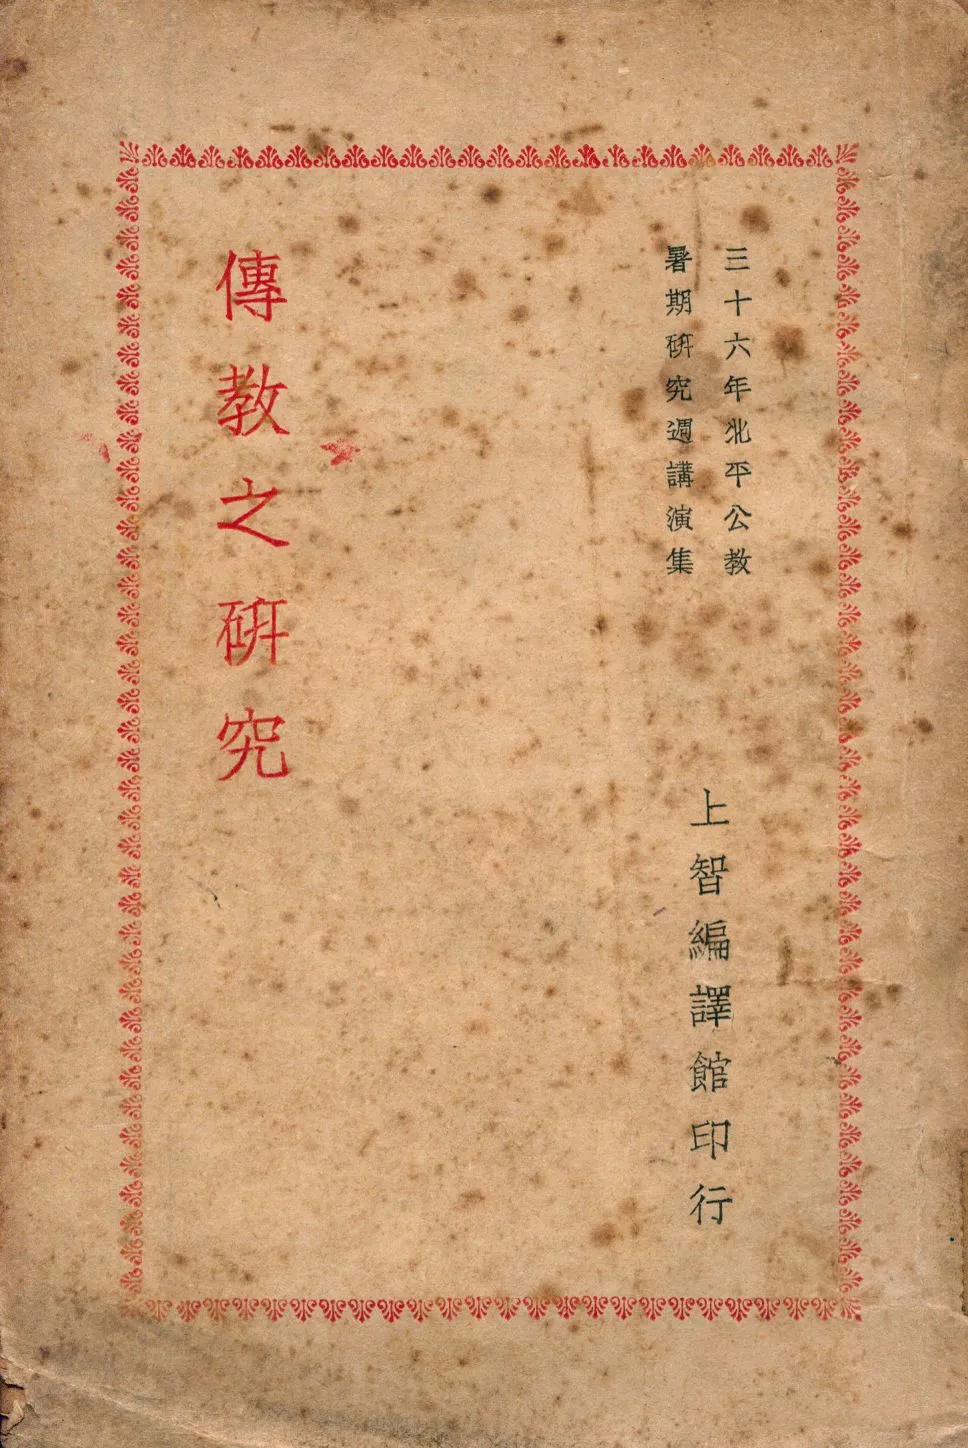 三十六年北平公教
暑期研究週講演集
上智編譯館印行
傳教之研究